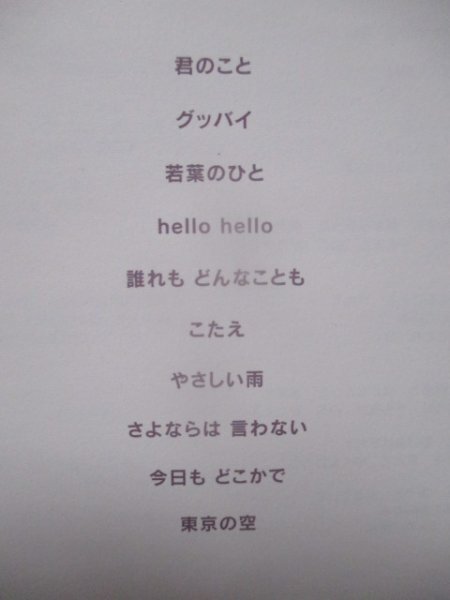 君のこと
グッバイ
若葉のひと
hello hello
誰れも どんなことも
こたえ
やさしい雨
さよならは 言わない
今日も どこかで
東京の空